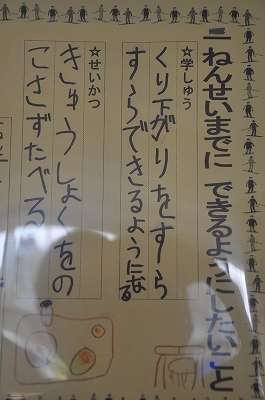 二ねんせいまでに できるようにしたいこと
☆学しゅう
くり下がりをすら
すらできるようになる
☆せいかつ
きゅうしょくをの
こさずたべる